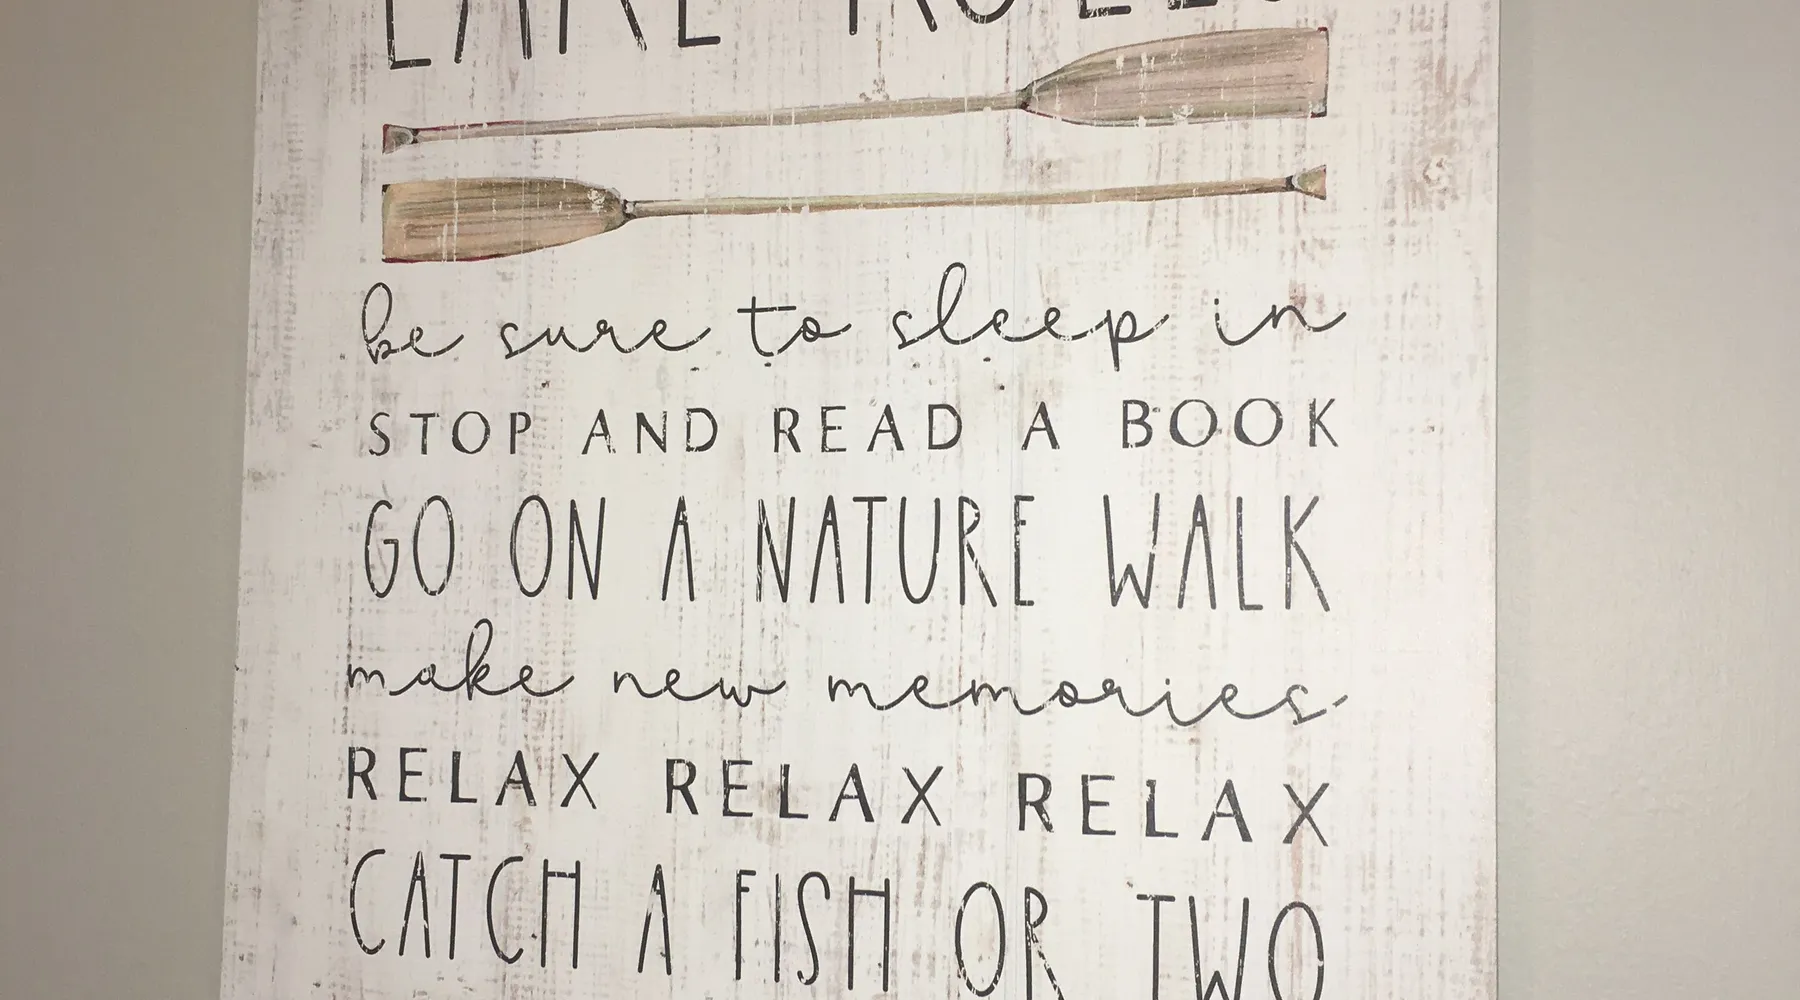 LAKE RULES
be sure to sleep in
STOP AND READ A BOOK
GO ON A NATURE WALK
make new memories
RELAX RELAX RELAX
CATCH A FISH OR TWO